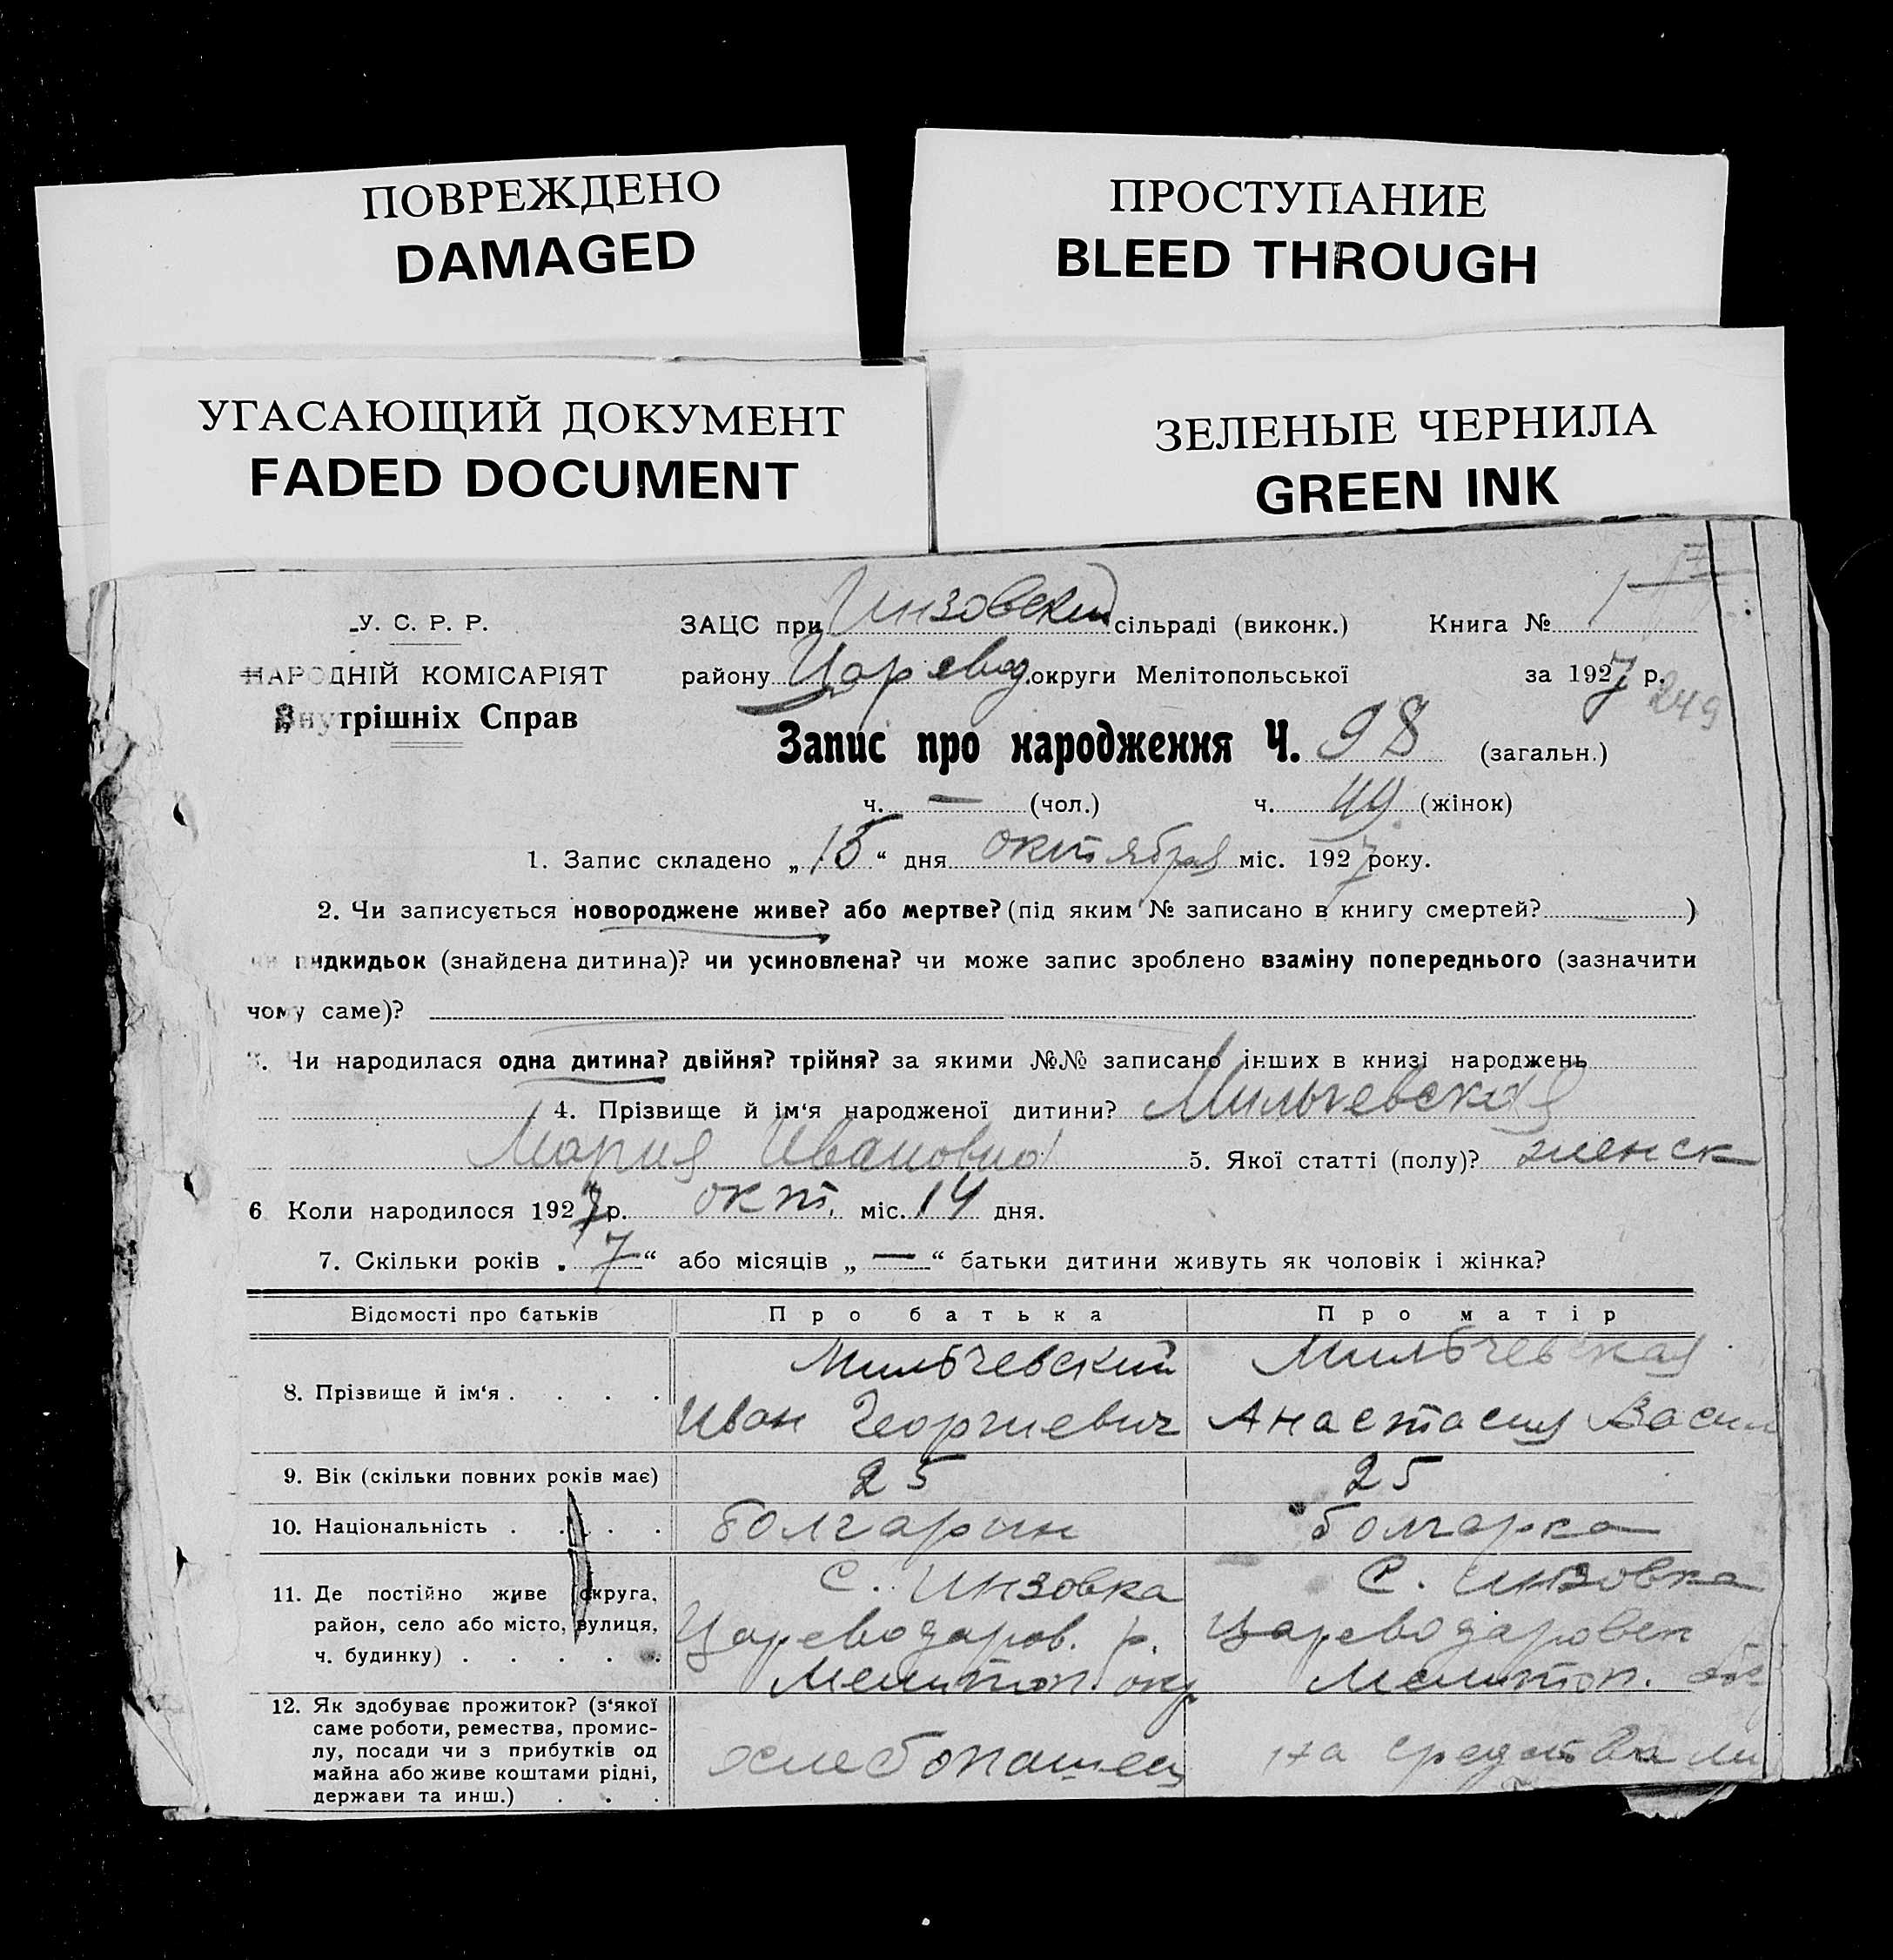 ПОВРЕЖДЕНО
DAMAGED
ПРОСТУПАНИЕ
BLEED THROUGH
УГАСАЮЩИЙ ДОКУМЕНТ
FADED DOCUMENT
ЗЕЛЕНЫЕ ЧЕРНИЛА
GREEN INK
У. С. Р. Р.
НАРОДНІЙ КОМІСАРІЯТ
Внутрішніх Справ
ЗАЦС при Инзовский сільраді (виконк.) Книга № 1
району Царевод. округи Мелітопольської за 1927 р.
249
Запис про народження Ч. 98 (загальн.)
ч. — (чол.) ч. 49 (жінок)
1. Запис складено „15“ дня октября міс. 1927 року.
2. Чи записується новороджене живе? або мертве? (під яким № записано в книгу смертей? —)
чи підкидьок (знайдена дитина)? чи усиновлена? чи може запис зроблено взаміну попереднього (зазначити
чому саме)?
3. Чи народилася одна дитина? двійня? трійня? за якими №№ записано інших в книзі народжень
4. Прізвище й ім‘я народженої дитини? Мильчевская
Мария Ивановна 5. Якої статті (полу)? женск
6 Коли народилося 1927 р. окт. міс. 14 дня.
7. Скільки років „7“ або місяців „—“ батьки дитини живуть як чоловік і жінка?
Відомості про батьків Про батька Про матір
8. Прізвище й ім‘я . . . . Мильчевский Мильчевская
Иван Георгиевич Анастасия Васил
9. Вік (скільки повних років має) 25 25
10. Національність . . . . болгарин болгарка
11. Де постійно живе (округа, с. Инзовка с. Инзовка
район, село або місто, вулиця, Цареводаров. р. Цареводаровск
ч. будинку) . . . . . Мелитоп. окр Мелитоп.
12. Як здобуває прожиток? (з‘якої
саме роботи, ремества, промис-
лу, посади чи з прибутків од хлебопашец на средства
майна або живе коштами рідні,
держави та инш.) . . .